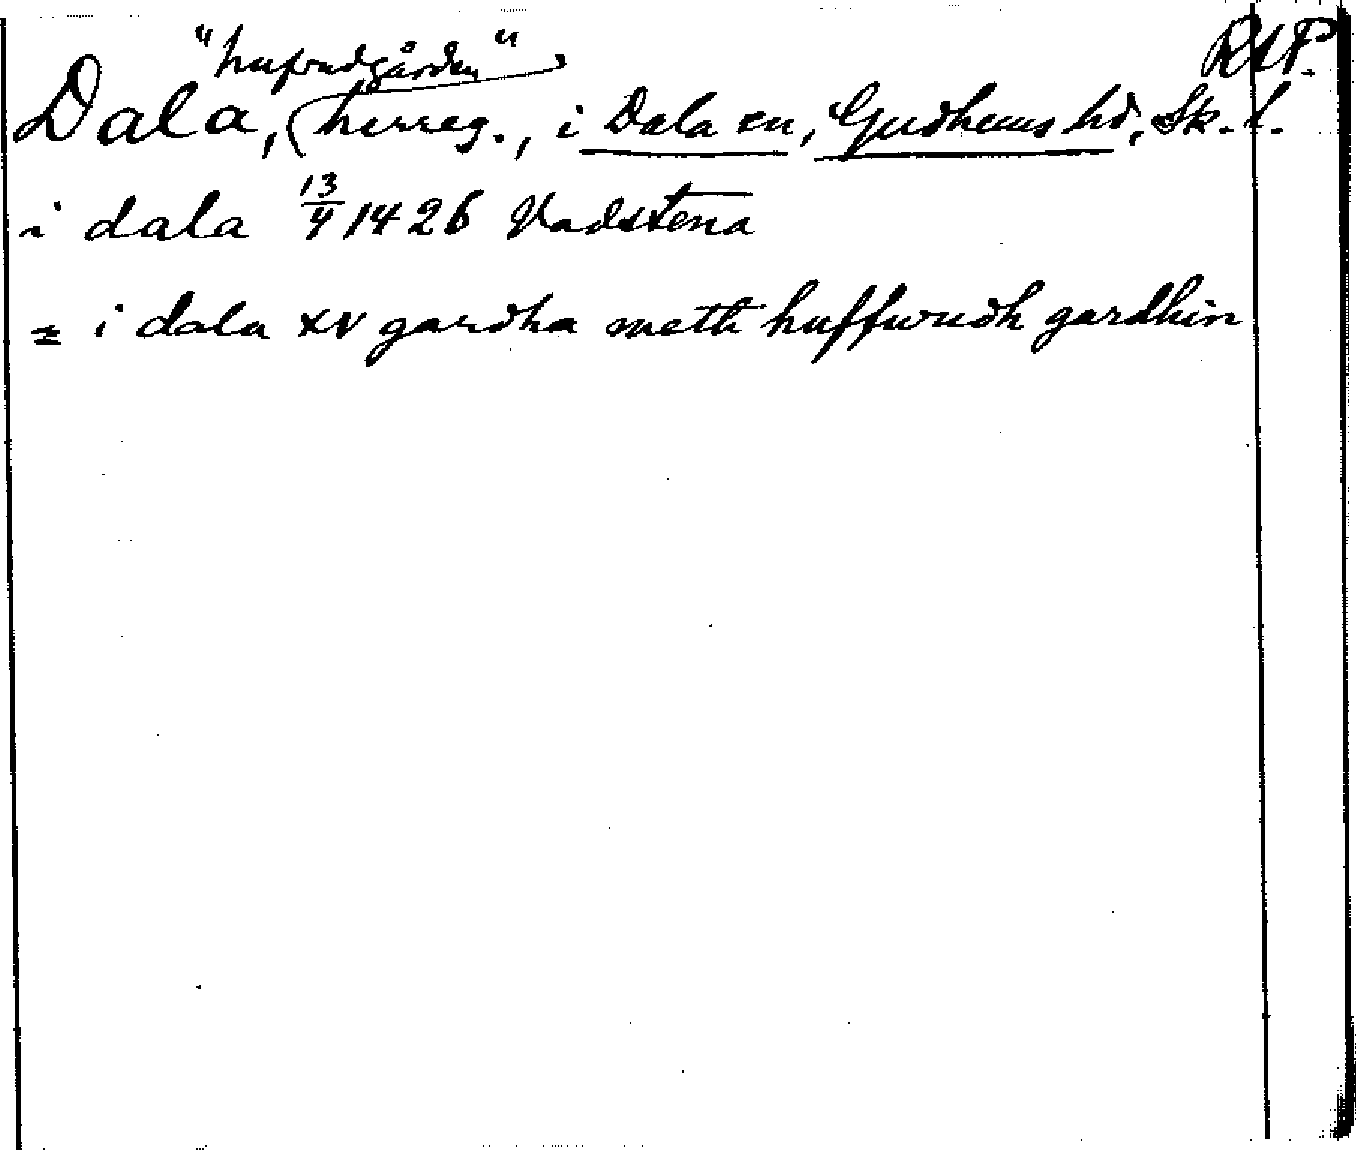 "hufvudgården" RAP.
Dala, (herreg., i Dala sn, Gudhems hd, Sk. l.
i dala 13/4 1426 Vadstena
= i dala xv gardha meth huffwudh gardhin